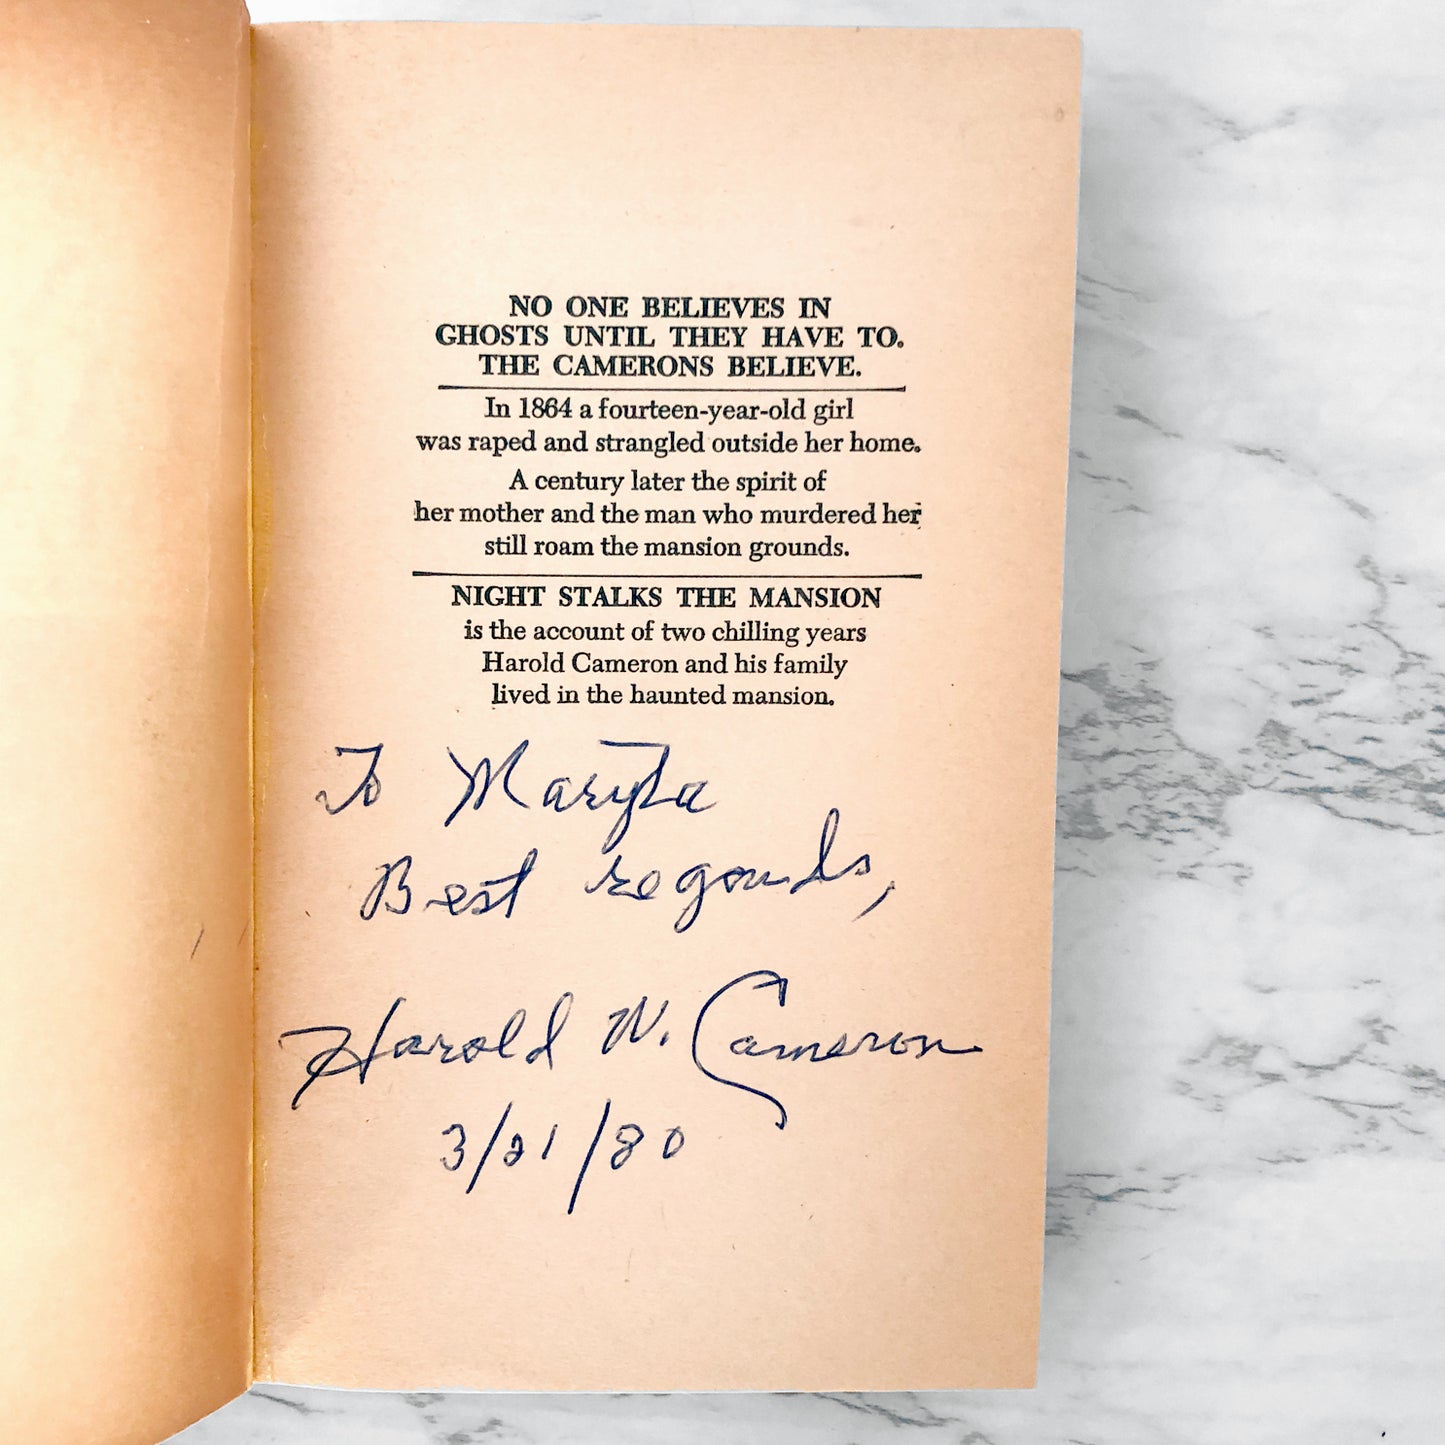 NO ONE BELIEVES IN
GHOSTS UNTIL THEY HAVE TO.
THE CAMERONS BELIEVE.
In 1864 a fourteen-year-old girl
was raped and strangled outside her home.
A century later the spirit of
her mother and the man who murdered her
still roam the mansion grounds.
NIGHT STALKS THE MANSION
is the account of two chilling years
Harold Cameron and his family
lived in the haunted mansion.
To Maryta
Best regards,
Harold W. Cameron
3/21/80